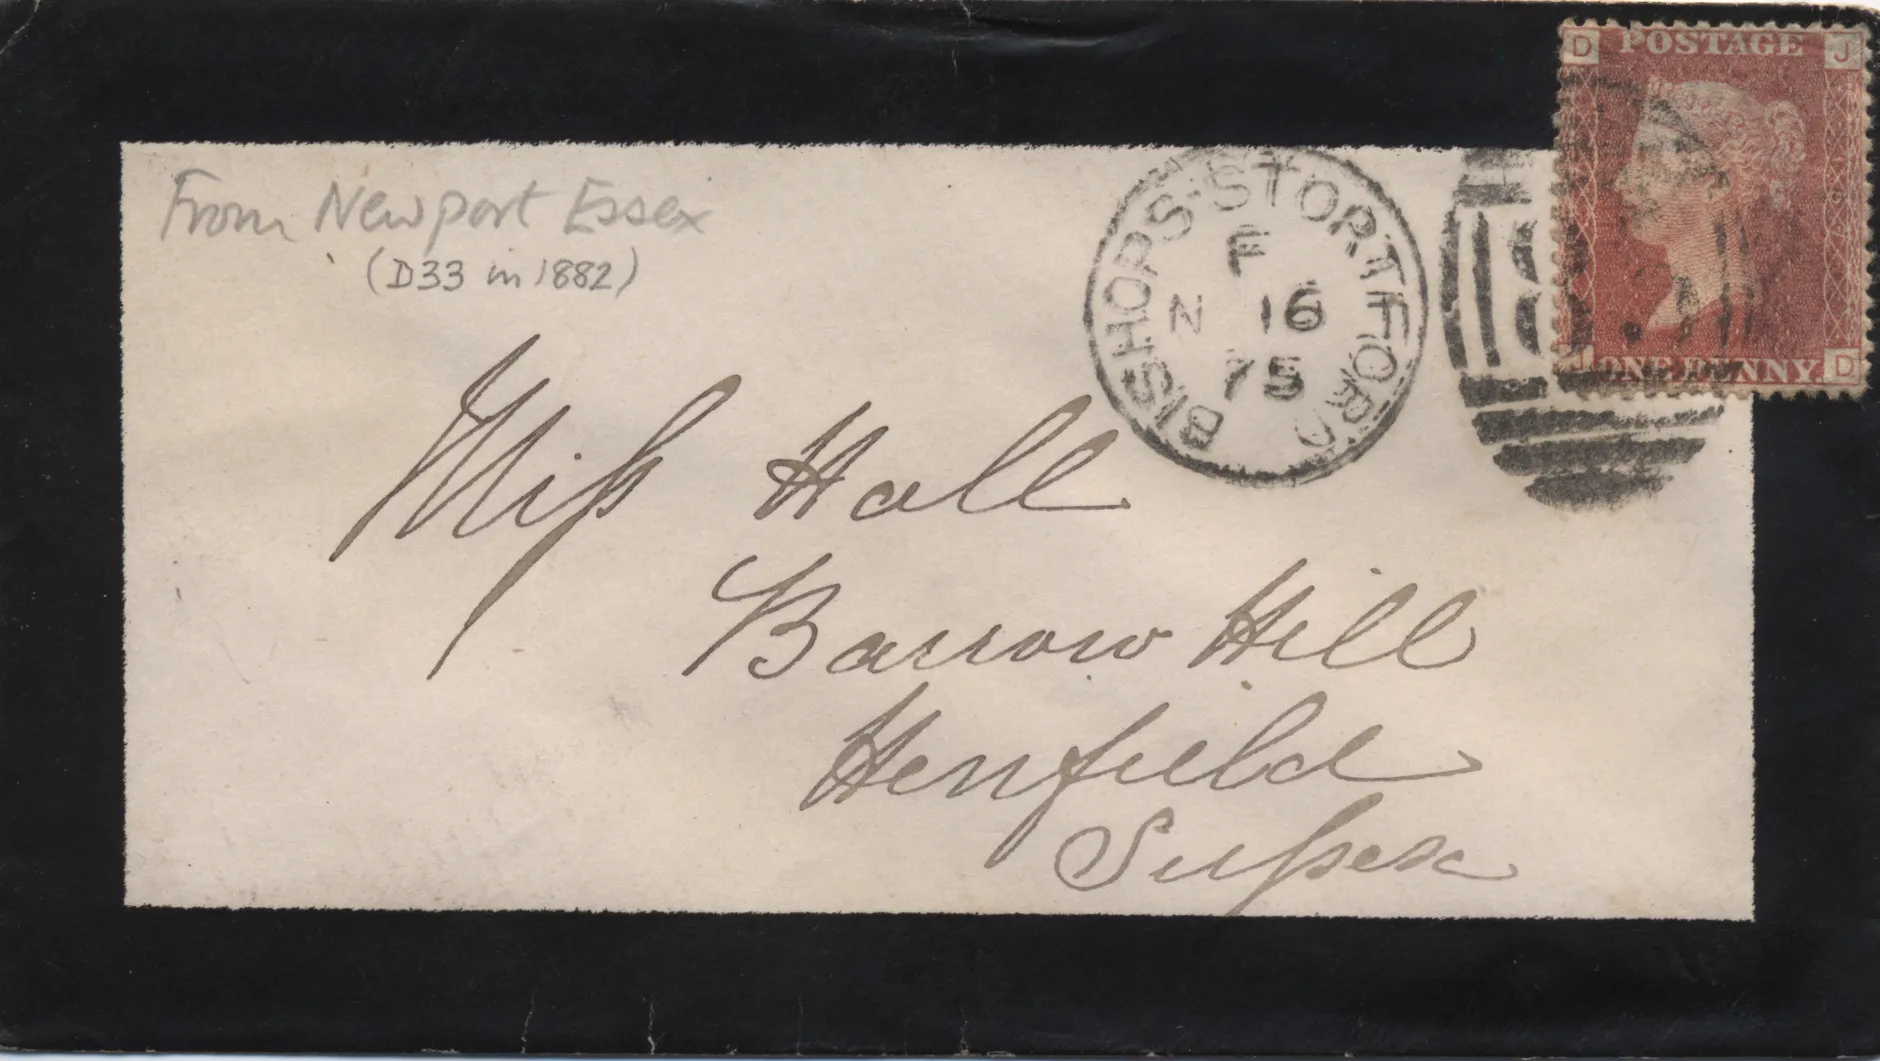 From Newport Essex
(D33 in 1882)
D POSTAGE J
BISHOPS·STORTFORD
F
N 16
75
J ONE PENNY D
Miss Hall
Barrow Hill
Henfield
Sussex